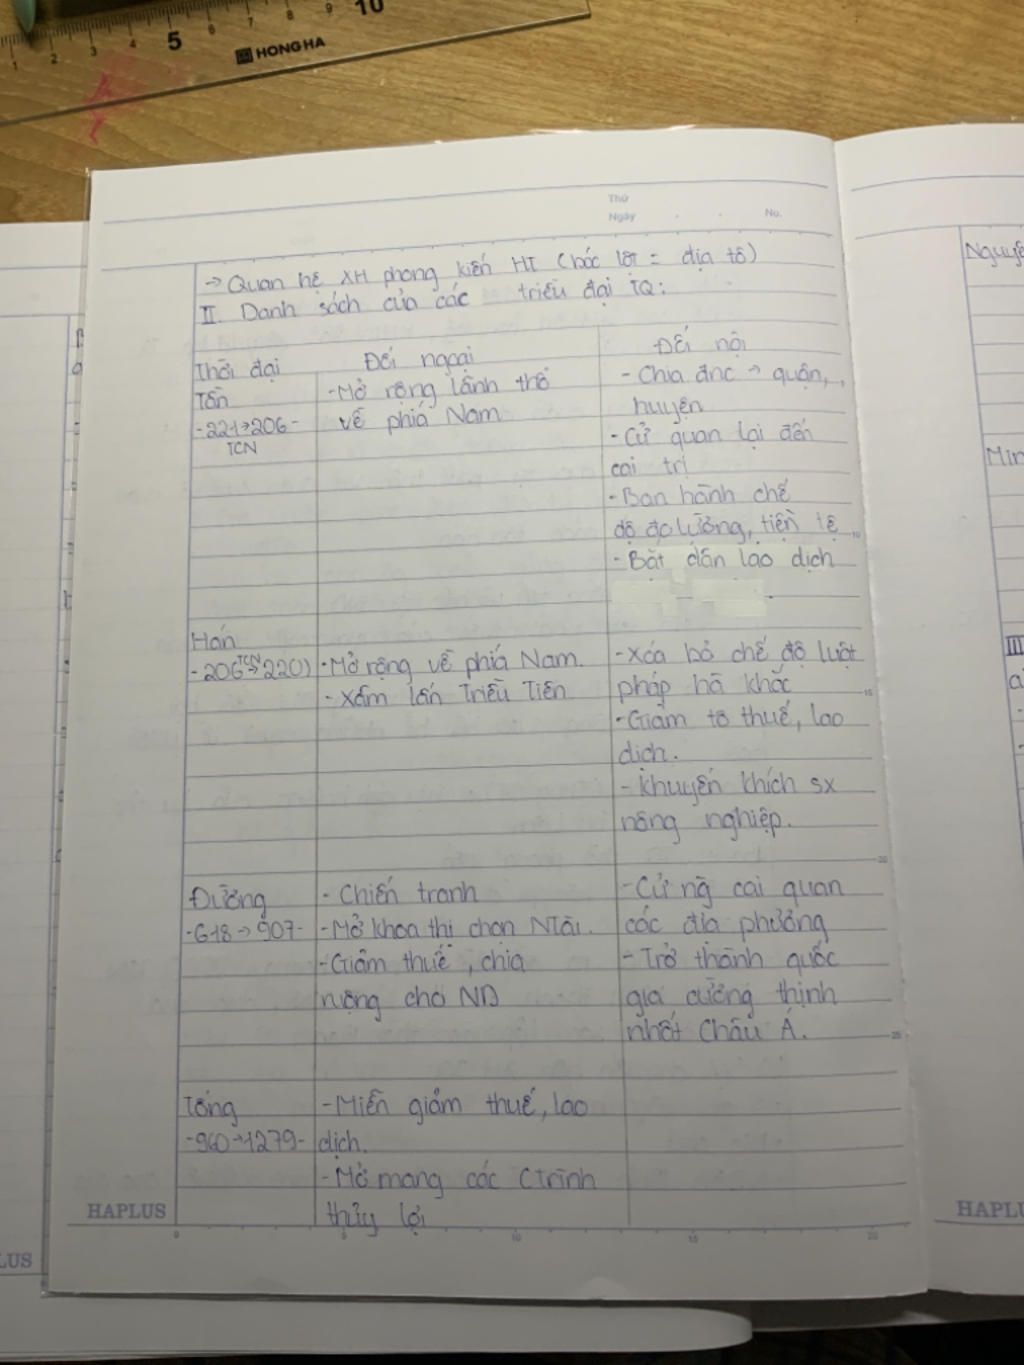 1 2 3 4 5 6 7 8 9 10
HONG HA
Thứ
Ngày . . No.
→ Quan hệ XH phong kiến HT (bóc lột = địa tô)
II. Danh sách của các triều đại TQ:
Thời đại Đối ngoại Đối nội
Tần
-221→206-
TCN
-Mở rộng lãnh thổ
về phía Nam
- Chia đnc → quận,
huyện
-Cử quan lại đến
cai trị
-Ban hành chế
độ đo lường, tiền tệ
-Bắt dân lao dịch
Hán
-206TCN→220)
-Mở rộng về phía Nam.
-Xâm lấn Triều Tiên
-Xóa bỏ chế độ luật
pháp hà khắc
-Giảm tô thuế, lao
dịch.
-Khuyến khích sx
nông nghiệp.
Đường
-618→907-
- Chiến tranh
-Mở khoa thi chọn NTài.
-Giảm thuế, chia
ruộng cho ND
-Cử ng cai quan
các địa phương
-Trở thành quốc
gia cường thịnh
nhất Châu Á.
Tống
-960→1279-
-Miễn giảm thuế, lao
dịch.
-Mở mang các Ctrình
thủy lợi
10
15
20
25
HAPLUS
0 5 10 15 20
Nguyê
Min
III
a
HAPLU
LUS